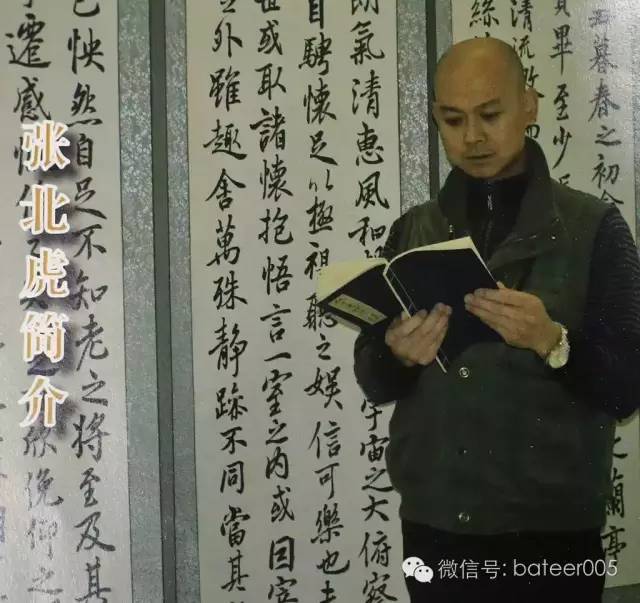 张北虎简介
丑暮春之初會
之蘭亭
畢至少
清流激
絲
朗氣清惠風和
宇宙之大俯察
自騁懷足以極視聽之娛信可樂也夫
或取諸懷抱悟言一室之內或因寄
外雖趣舍萬殊靜躁不同當其
己怏然自足不知老之將至及其
遷感慨
欣俛仰之
微信号: bateer005